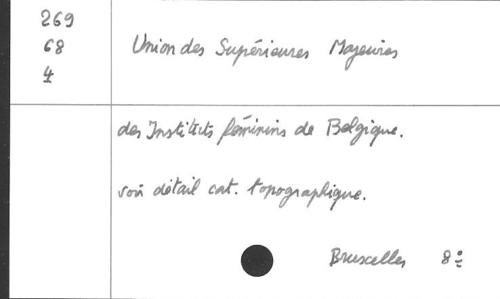 269
68
4
Union des Supérieures Majeures
des Instituts féminins de Belgique.
voir détail cat. topographique.
Bruxelles 8º